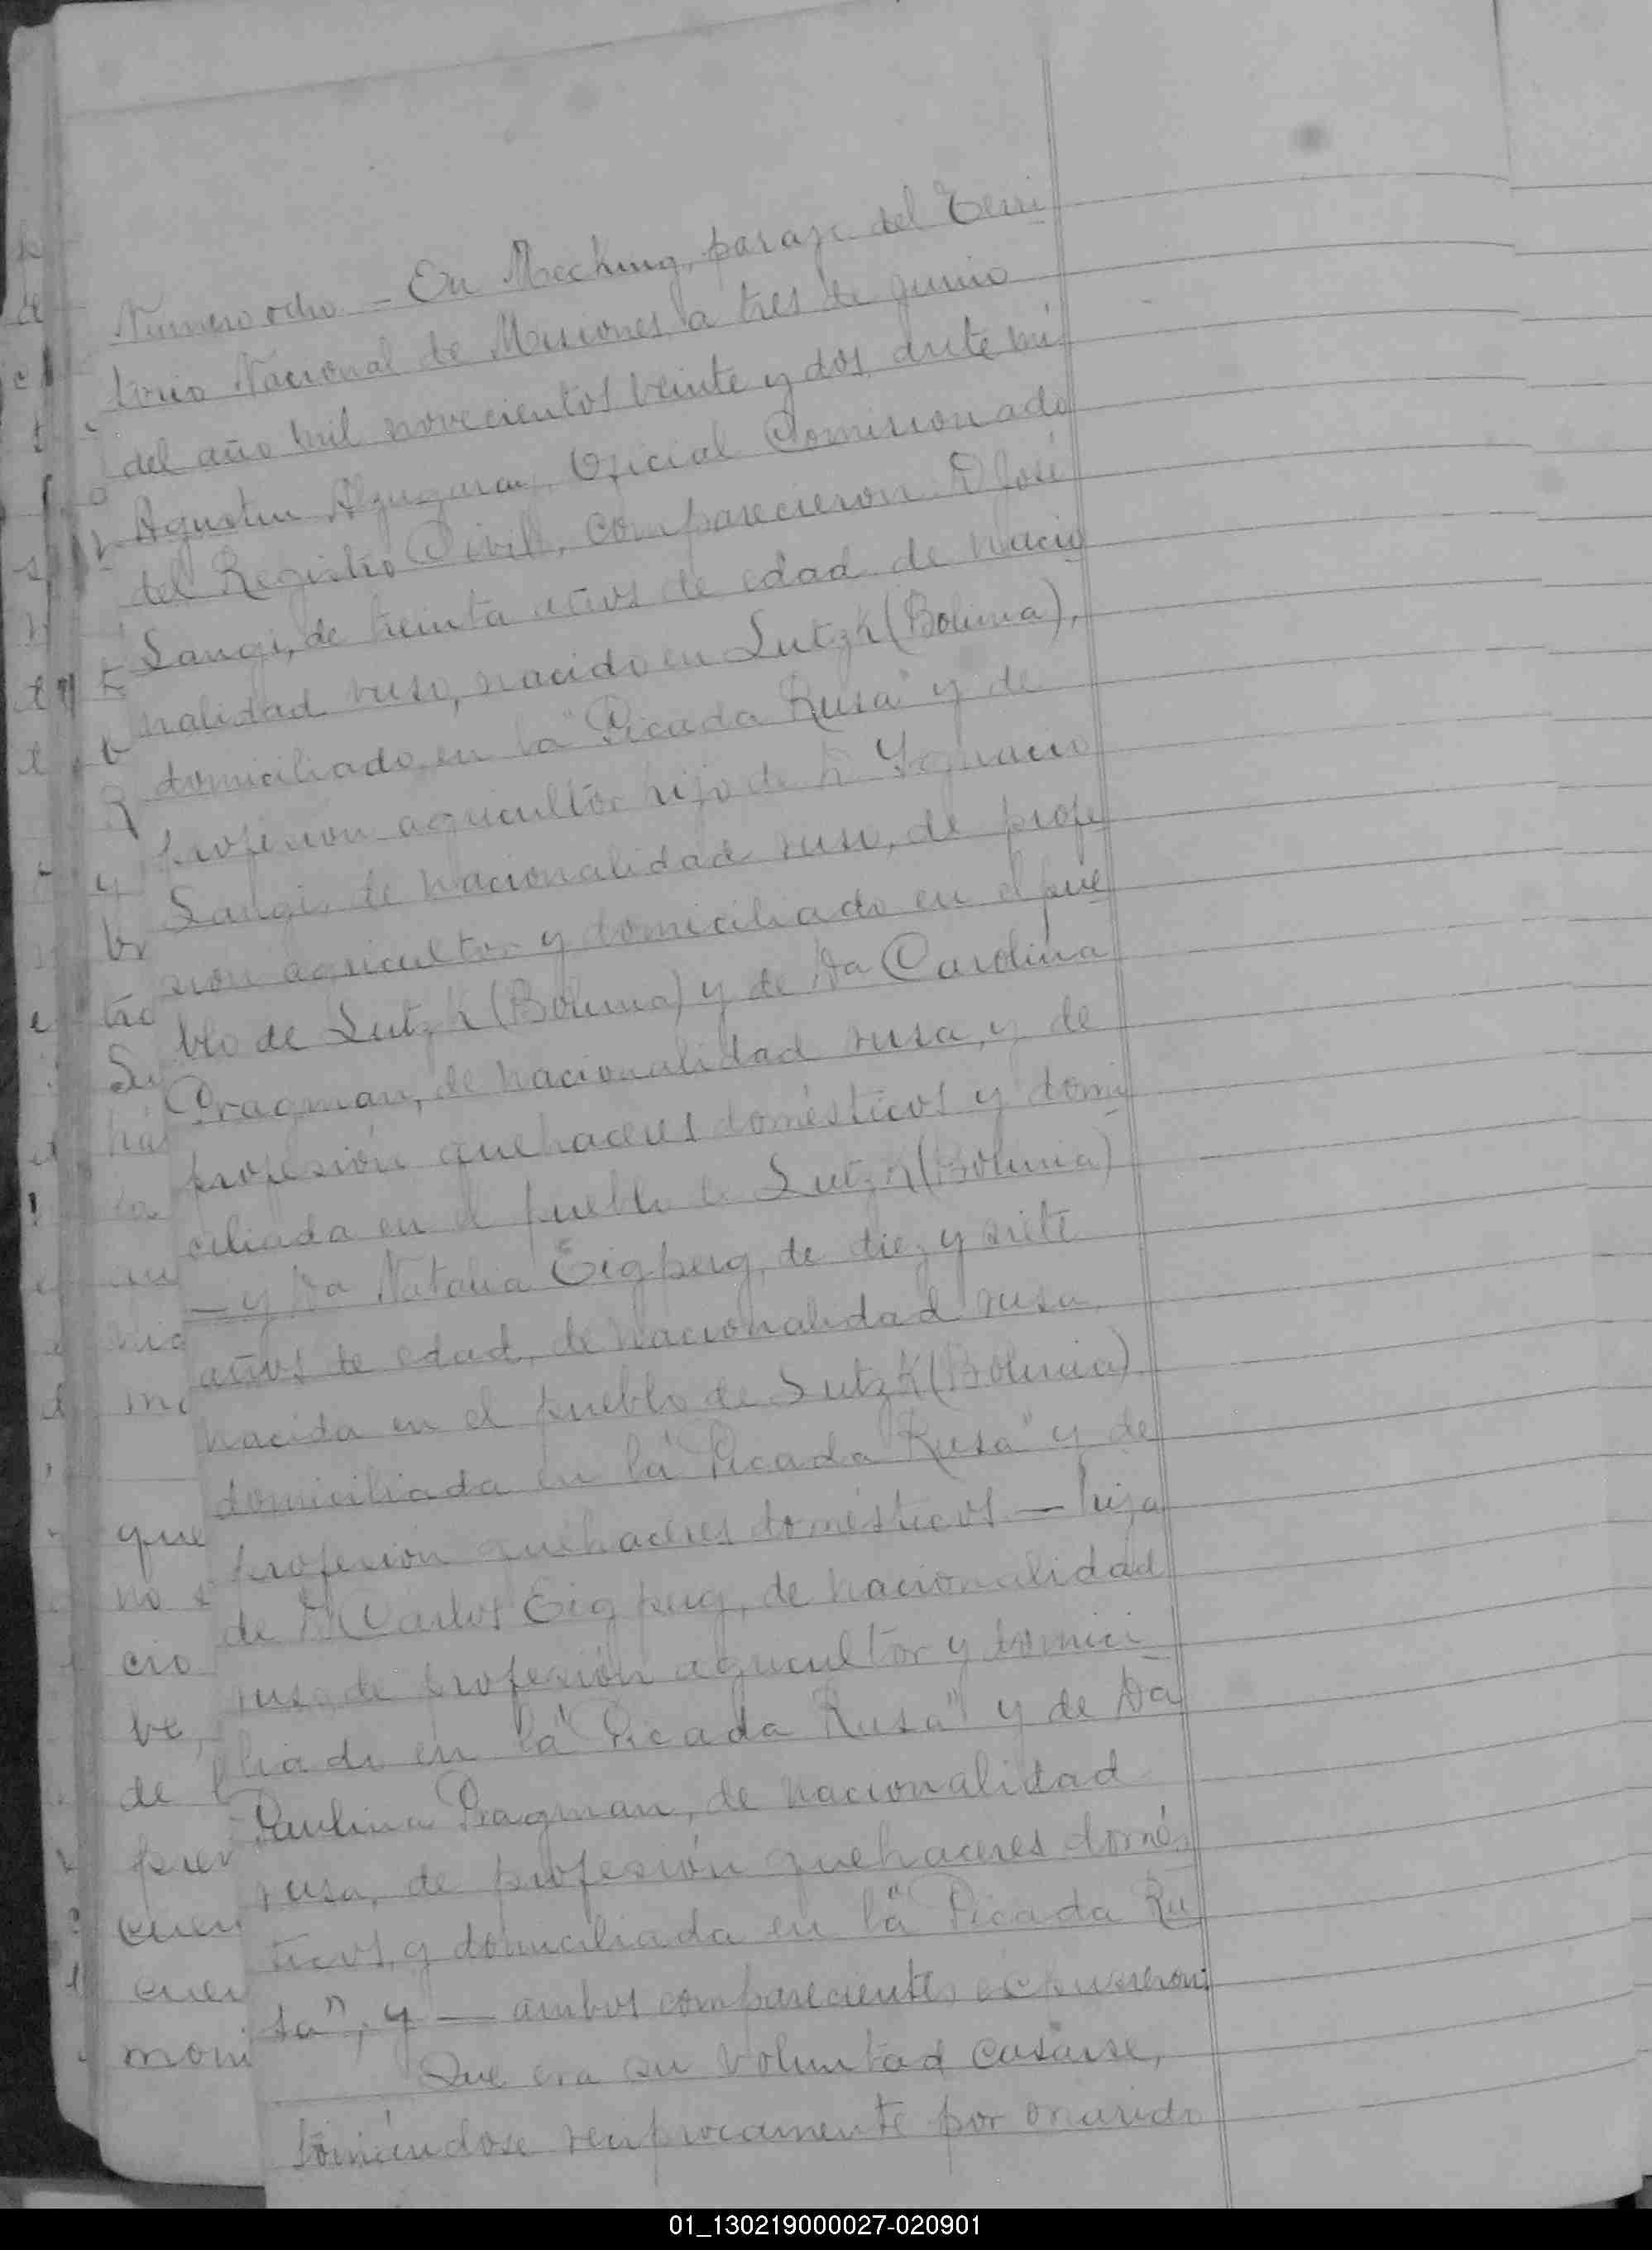 Numero ocho – En Meching, paraje del Terri
torio Nacional de Misiones, a tres de junio
del año mil novecientos veinte y dos, ante mí
Agustin Alzugaray, Oficial Comisionado
del Registro Civil, comparecieron D José
Langi, de treinta años de edad, de nacio
nalidad ruso, nacido en Lutzk (Bolinia),
domiciliado en la "Picada Rusa" y de
profesion agricultor hijo de D. Ygnacio
Langi, de nacionalidad ruso, de profe
sion agricultor y domiciliado en el pue
blo de Lutzk (Bolinia) y de Da Carolina
Pragman, de nacionalidad rusa, y de
profesión quehaceres domésticos y domi
ciliada en el pueblo de Lutzk (Bolinia)
— y Da Natalia Eigperg, de diez y siete
años de edad, de nacionalidad rusa,
nacida en el pueblo de Lutzk (Bolinia)
domiciliada en la "Picada Rusa" y de
profesion quehaceres domésticos — hija
de D. Carlos Eigperg, de nacionalidad
ruso, de profesión agricultor y domici
liado en la "Picada Rusa" y de Da
Paulina Pragman, de nacionalidad
rusa, de profesión quehaceres domés
ticos, y domiciliada en la "Picada Ru
sa", y — ambos comparecientes expusieron:
Que era su voluntad casarse,
tomándose reciprocamente por marido
01_130219000027-020901